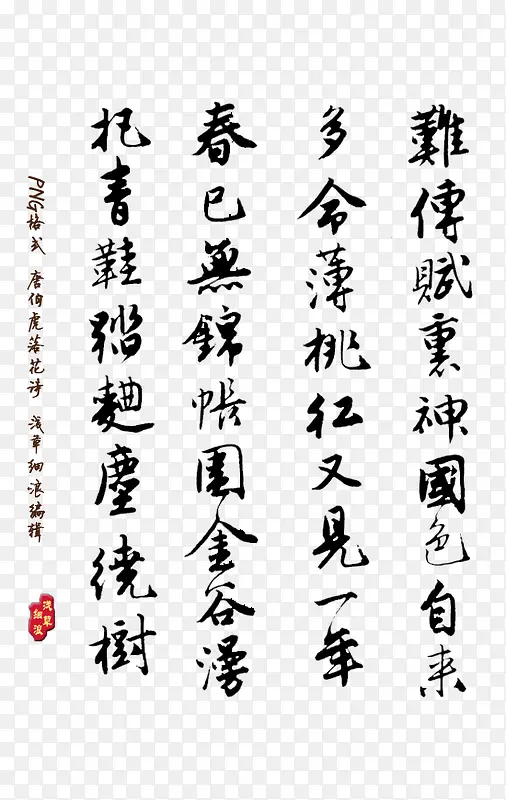 難傳賦裏神國色自来
多命薄桃红又見一年
春已無錦帳圍金谷漫
把青鞋踏麯塵繞樹
PNG格式 唐伯虎落花诗 浅草细浪编辑
浅草
细浪